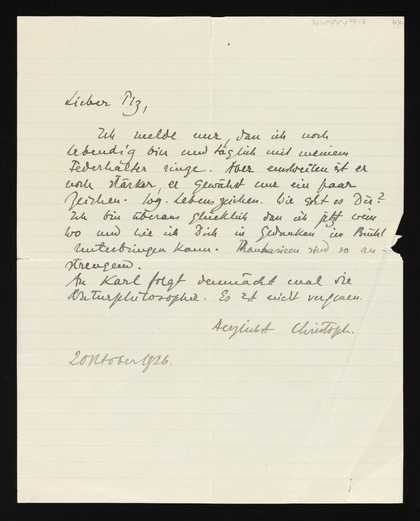 Lieber Plz,
Ich melde nur, dan ich noch
lebendig bin und täglich mit meinem
Federhalter ringe. Aber einstweilen ist er
noch stärker, er gewährt nur ein paar
Zeichen. sog. Lebenszeichen. Wie geht es Dir?
Ich bin überaus glücklich dan ich jetzt weiss
wo und wie ich Dich in Gedanken in Brühl
unterbringen kann. sind so an-
strengend.
An Karl folgt demnächst mal die
Naturphilosophie. Es ist nicht vergessen.
Herzlichst Christoph.
20 Oktober 1926.